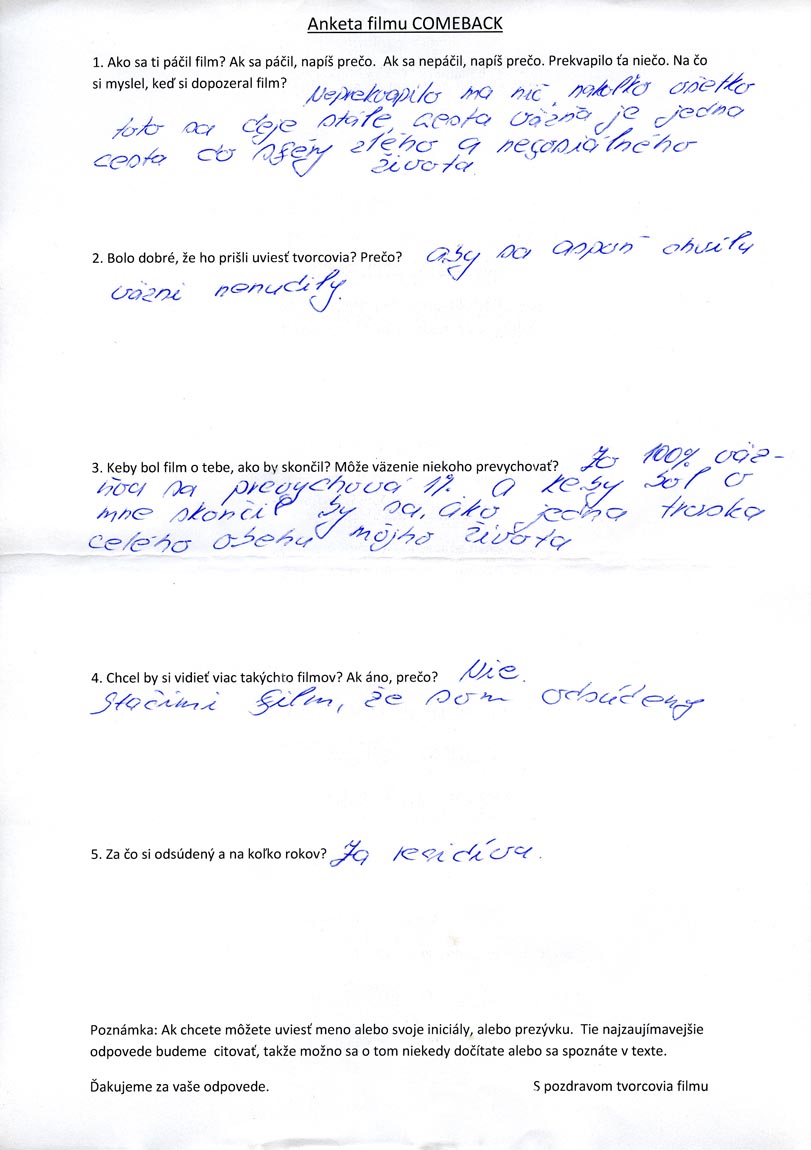 Anketa filmu COMEBACK
1. Ako sa ti páčil film? Ak sa páčil, napíš prečo.  Ak sa nepáčil, napíš prečo. Prekvapilo ťa niečo. Na čo
si myslel, keď si dopozeral film? Neprekvapilo ma nič, nakoľko všetko
toto sa deje stále, cesta väzňa je jedna
cesta do sféry zlého a nesosiálneho
života.
2. Bolo dobré, že ho prišli uviesť tvorcovia? Prečo? aby sa aspoň chvílu
väzni nenudily.
3. Keby bol film o tebe, ako by skončil? Môže väzenie niekoho prevychovať? Zo 100% väz-
ňou sa prevychová 1%. a keby bol o
mne skončil by sa, ako jedna troska
celého obehu môjho života
4. Chcel by si vidieť viac takýchto filmov? Ak áno, prečo? Nie.
Stačimi film, že som odsúdeny
5. Za čo si odsúdený a na koľko rokov? Za recidíva.
Poznámka: Ak chcete môžete uviesť meno alebo svoje iniciály, alebo prezývku.  Tie najzaujímavejšie
odpovede budeme  citovať, takže možno sa o tom niekedy dočítate alebo sa spoznáte v texte.
Ďakujeme za vaše odpovede. S pozdravom tvorcovia filmu